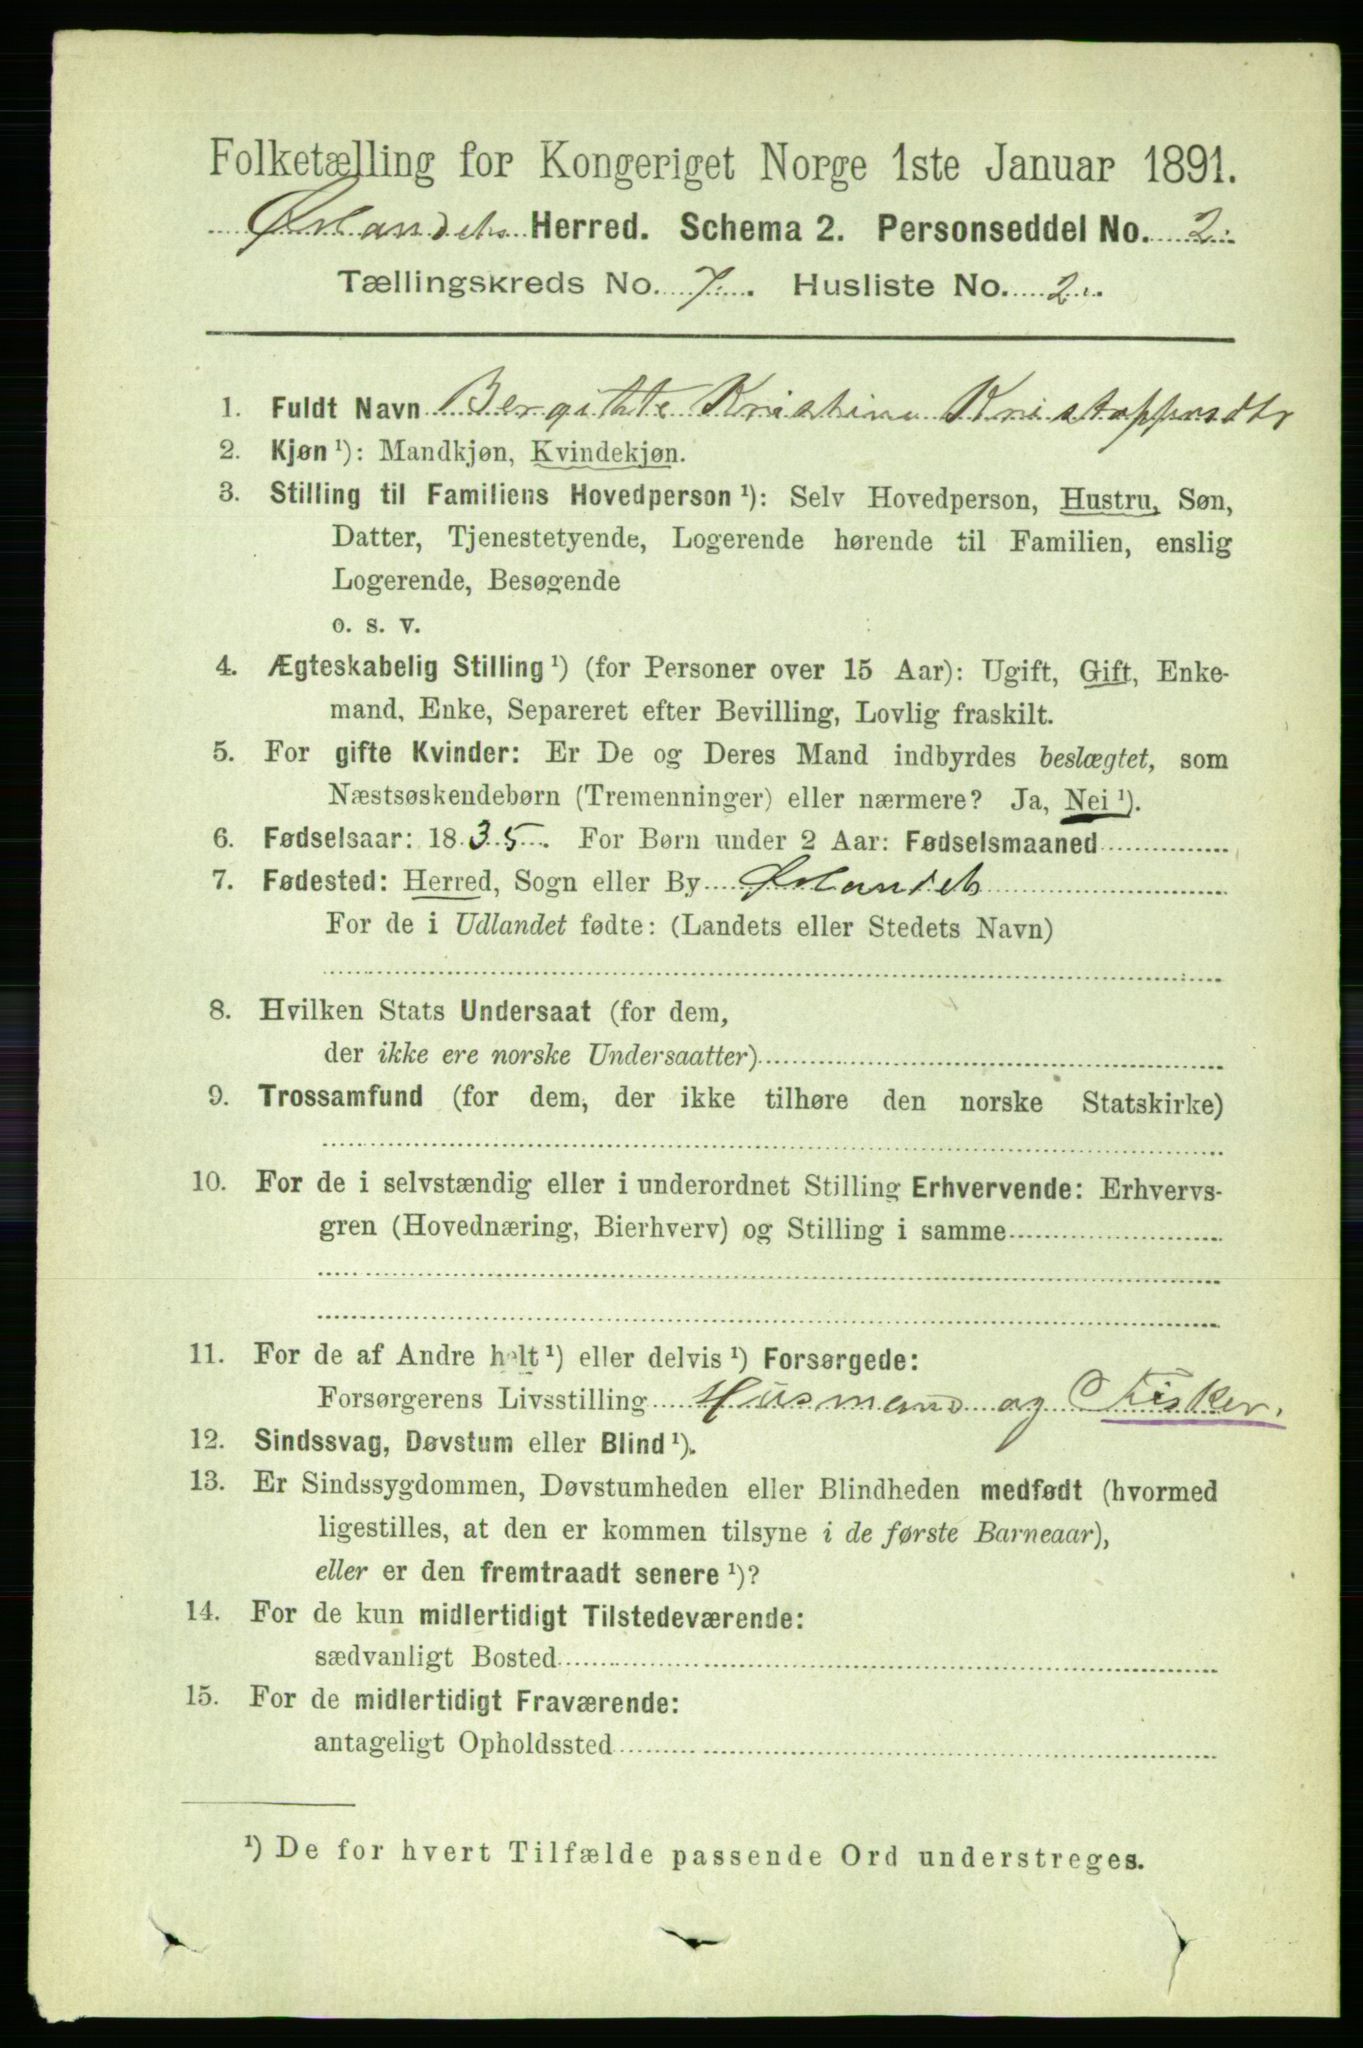 Folketælling for Kongeriget Norge 1ste Januar 1891.
Ørlandets Herred. Schema 2. Personseddel No. 2.
Tællingskreds No. 7. Husliste No. 2.
1. Fuldt Navn Bergitte Kristine Kristoppersdtr
2. Kjøn ¹): Mandkjøn, Kvindekjøn.
3. Stilling til Familiens Hovedperson ¹): Selv Hovedperson, Hustru, Søn,
Datter, Tjenestetyende, Logerende hørende til Familien, enslig
Logerende, Besøgende
o. s. v.
4. Ægteskabelig Stilling ¹) (for Personer over 15 Aar): Ugift, Gift, Enke-
mand, Enke, Separeret efter Bevilling, Lovlig fraskilt.
5. For gifte Kvinder: Er De og Deres Mand indbyrdes beslægtet, som
Næstsøskendebørn (Tremenninger) eller nærmere? Ja, Nei ¹).
6. Fødselsaar: 1835. For Børn under 2 Aar: Fødselsmaaned
7. Fødested: Herred, Sogn eller By Ørlandets
For de i Udlandet fødte: (Landets eller Stedets Navn)
8. Hvilken Stats Undersaat (for dem,
der ikke ere norske Undersaatter)
9. Trossamfund (for dem, der ikke tilhøre den norske Statskirke)
10. For de i selvstændig eller i underordnet Stilling Erhvervende: Erhvervs-
gren (Hovednæring, Bierhverv) og Stilling i samme
11. For de af Andre helt ¹) eller delvis ¹) Forsørgede:
Forsørgerens Livsstilling Husmand og Fisker.
12. Sindssvag, Døvstum eller Blind ¹).
13. Er Sindssygdommen, Døvstumheden eller Blindheden medfødt (hvormed
ligestilles, at den er kommen tilsyne i de første Barneaar),
eller er den fremtraadt senere ¹)?
14. For de kun midlertidigt Tilstedeværende:
sædvanligt Bosted
15. For de midlertidigt Fraværende:
antageligt Opholdssted
¹) De for hvert Tilfælde passende Ord understreges.